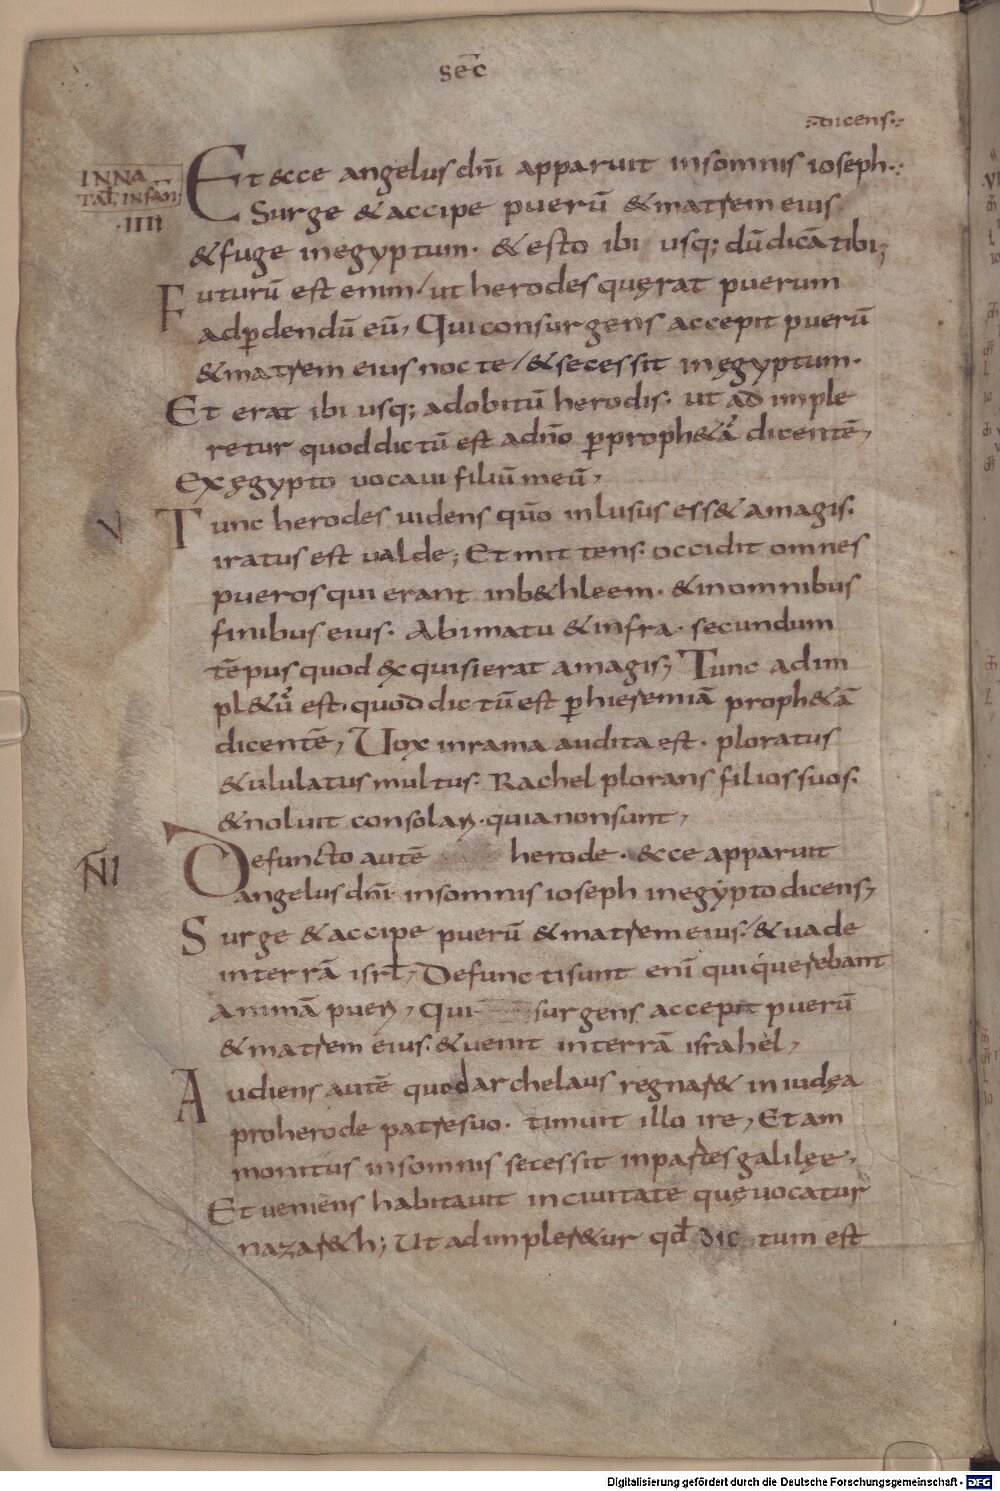 SEC̄
⁘dicens⁘
INNA
TAL̄ INFAN̄
·IIII
Et ecce angelus dn̄i apparuit insomnis ioseph⁘
Surge & accipe puerū & matrem eius
& fuge inegyptum· & esto ibi usq; dū dicā tibi;
Futurū est enim/ ut herodes quęrat puerum
adꝑdendū eū, Qui consurgens accepit puerū
& matrem eius nocte/ & secessit in ęgyptum·
Et erat ibi usq; adobitū herodis· ut adimple
retur quod dictū est adn̄o ꝑproph&ā dicentē,
Ex ęgypto uocaui filiū meū,
V
Tunc herodes uidens qūo inlusus ess& amagis·
iratus est ualde; Et mittens· occidit omnes
pueros qui erant inb&hleem· & inomnibus
finibus eius· Abimatu & infra· secundum
tēpus quod exquisierat amagis; Tunc adim
pl&ū est· quod dictū est ꝑhieremiā proph&ā
dicentē, Uox inrama audita est· ploratus
& ululatus multus· Rachel plorans filios suos·
& noluit consolari· quia non sunt,
N̄I
Defuncto autē herode· ecce apparuit
angelus dn̄i insomnis ioseph inegypto dicens;
Surge & accipe puerū & matrem eius· & uade
interrā isrl̄, Defuncti sunt enī qui querebant
animā pueri, Qui surgens accepit puerū
& matrem eius· & uenit interrā israhel,
Audiens autē quod archelaus regnar& in iudęa
proherode patre suo· timuit illo ire, Et am
monitus insomnis secessit inpartes galilęę·
Et ueniens habitauit in ciuitate quę uocatur
nazar&h; Ut adimpler&ur qd̄ dictum est
Digitalisierung gefördert durch die Deutsche Forschungsgemeinschaft - DFG